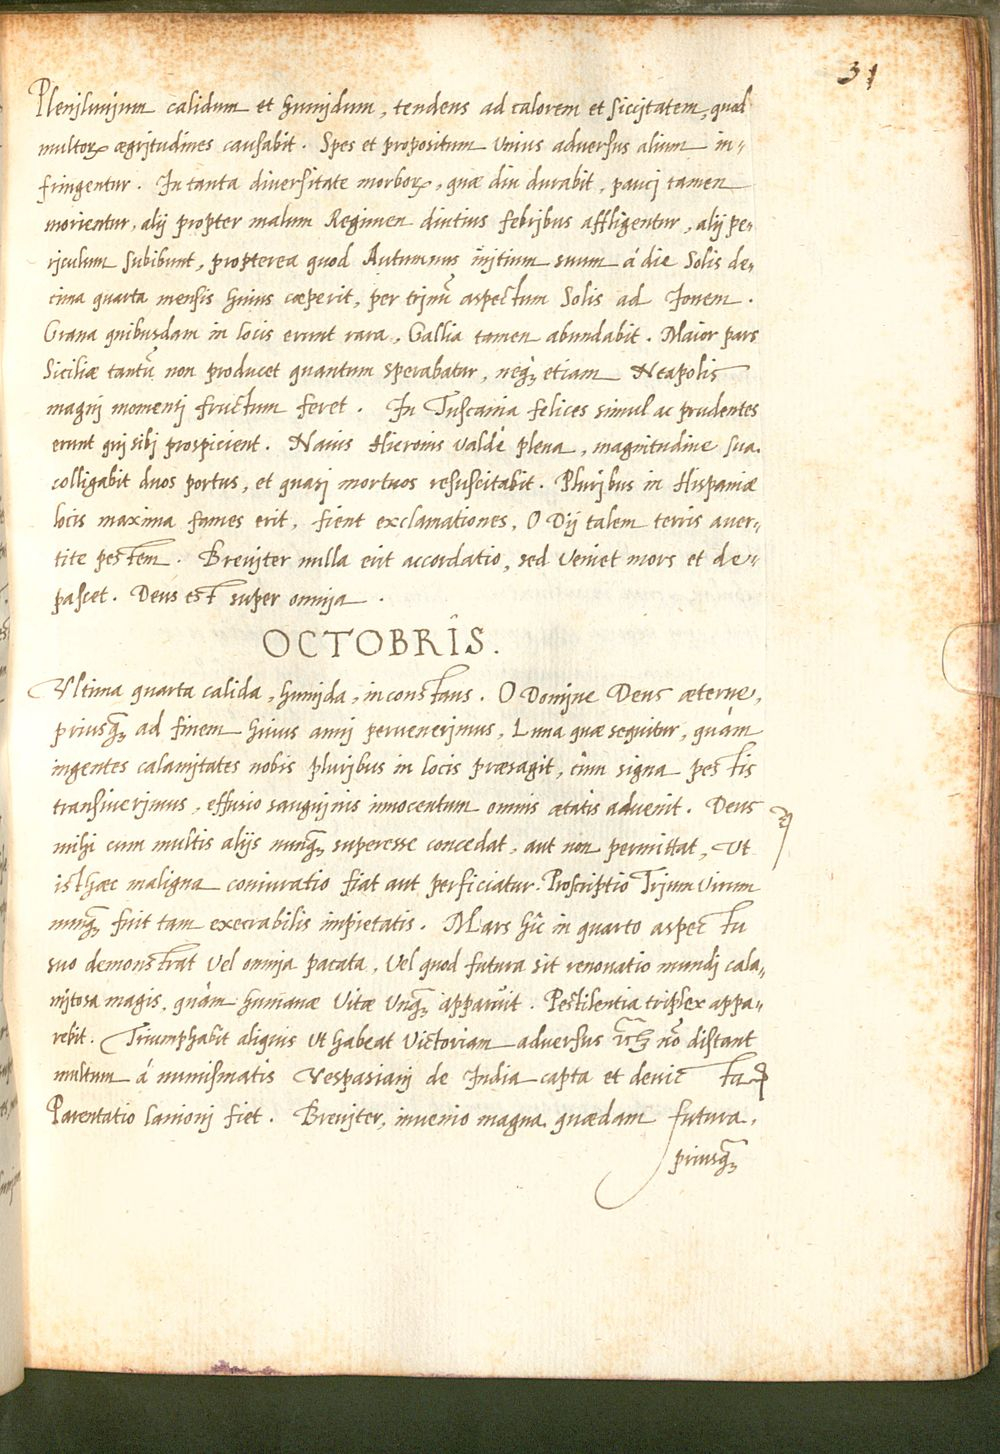 31
Plenilunium calidum et humidum, tendens ad calorem et siccitatem, quod
multorꝝ ægritudines causabit. Spes et propositum unius adversus alium in-
fringentur. In tanta diversitate morborꝝ, quæ diu durabit, pauci tamen
morientur, alij propter malum Regimen diutius febribus affligentur, alij pe-
riculum subibunt, propterea quod Autumnus initium suum á die Solis de-
cima quarta mensis huius cæperit, per trinū aspectum Solis ad Jovem.
Grana quibusdam in locis erunt rara, Gallia tamen abundabit. Maior pars
Siciliæ tantū non producet quantum sperabatur, neqꝫ etiam Neapolis
magni momenti fructum feret. In Tuscania felices simul ac prudentes
erunt qui sibi prospicient. Navis Hieronis valdé plena, magnitudine sua
colligabit duos portus, et quasi mortuos resuscitabit. Pluribus in Hispaniæ
locis maxima fames erit, fient exclamationes, O Dij talem terris aver-
tite pestem. Breviter nulla erit accordatio, sed veniet mors et de-
pascet. Deus est super omnia.
OCTOBRIS.
Ultima quarta calida, humida, inconstans. O Domine Deus æterne,
priusqꝫ ad finem huius anni pervenerimus, Luna quæ sequitur, quàm
ingentes calamitates nobis pluribus in locis præsagit, cùm signa pestis
transiverimus, effusio sanguinis innocentum omnis ætatis advenit. Deus
mihi cum multis alijs nunqꝫ superesse concedat, aut non permittat, ut
isthæc maligna coniuratio fiat aut perficiatur. Proscriptio Triumvirum
nunqꝫ fuit tam execrabilis impietatis. Mars hîc in quarto aspectu
suo demonstrat vel omnia pacata, vel quod futura sit renovatio mundi cala-
mitosa magis, quàm humanæ vitæ unqꝫ apparuit. Pestilentia triplex appa-
rebit. Triumphabit aliquis ut habeat victoriam adversus nō distant
multum á numismatis Vespasiani de India capta et devicta
Parentatio lanioni fiet. Breviter, invenio magna quædam futura,
priusqꝫ